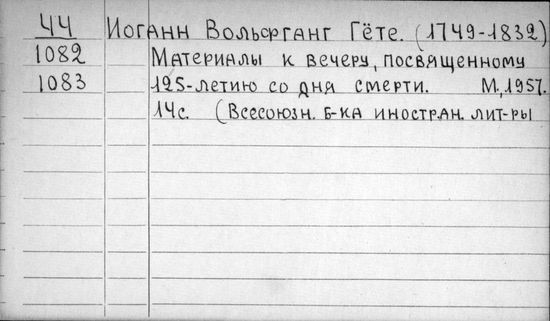 44 Иоганн Вольфганг Гёте. (1749-1832)
1082 Материалы к вечеру, посвященному
1083 125-летию со дня смерти. М., 1957.
14с. (Всесоюзн. б-ка иностран. лит-ры